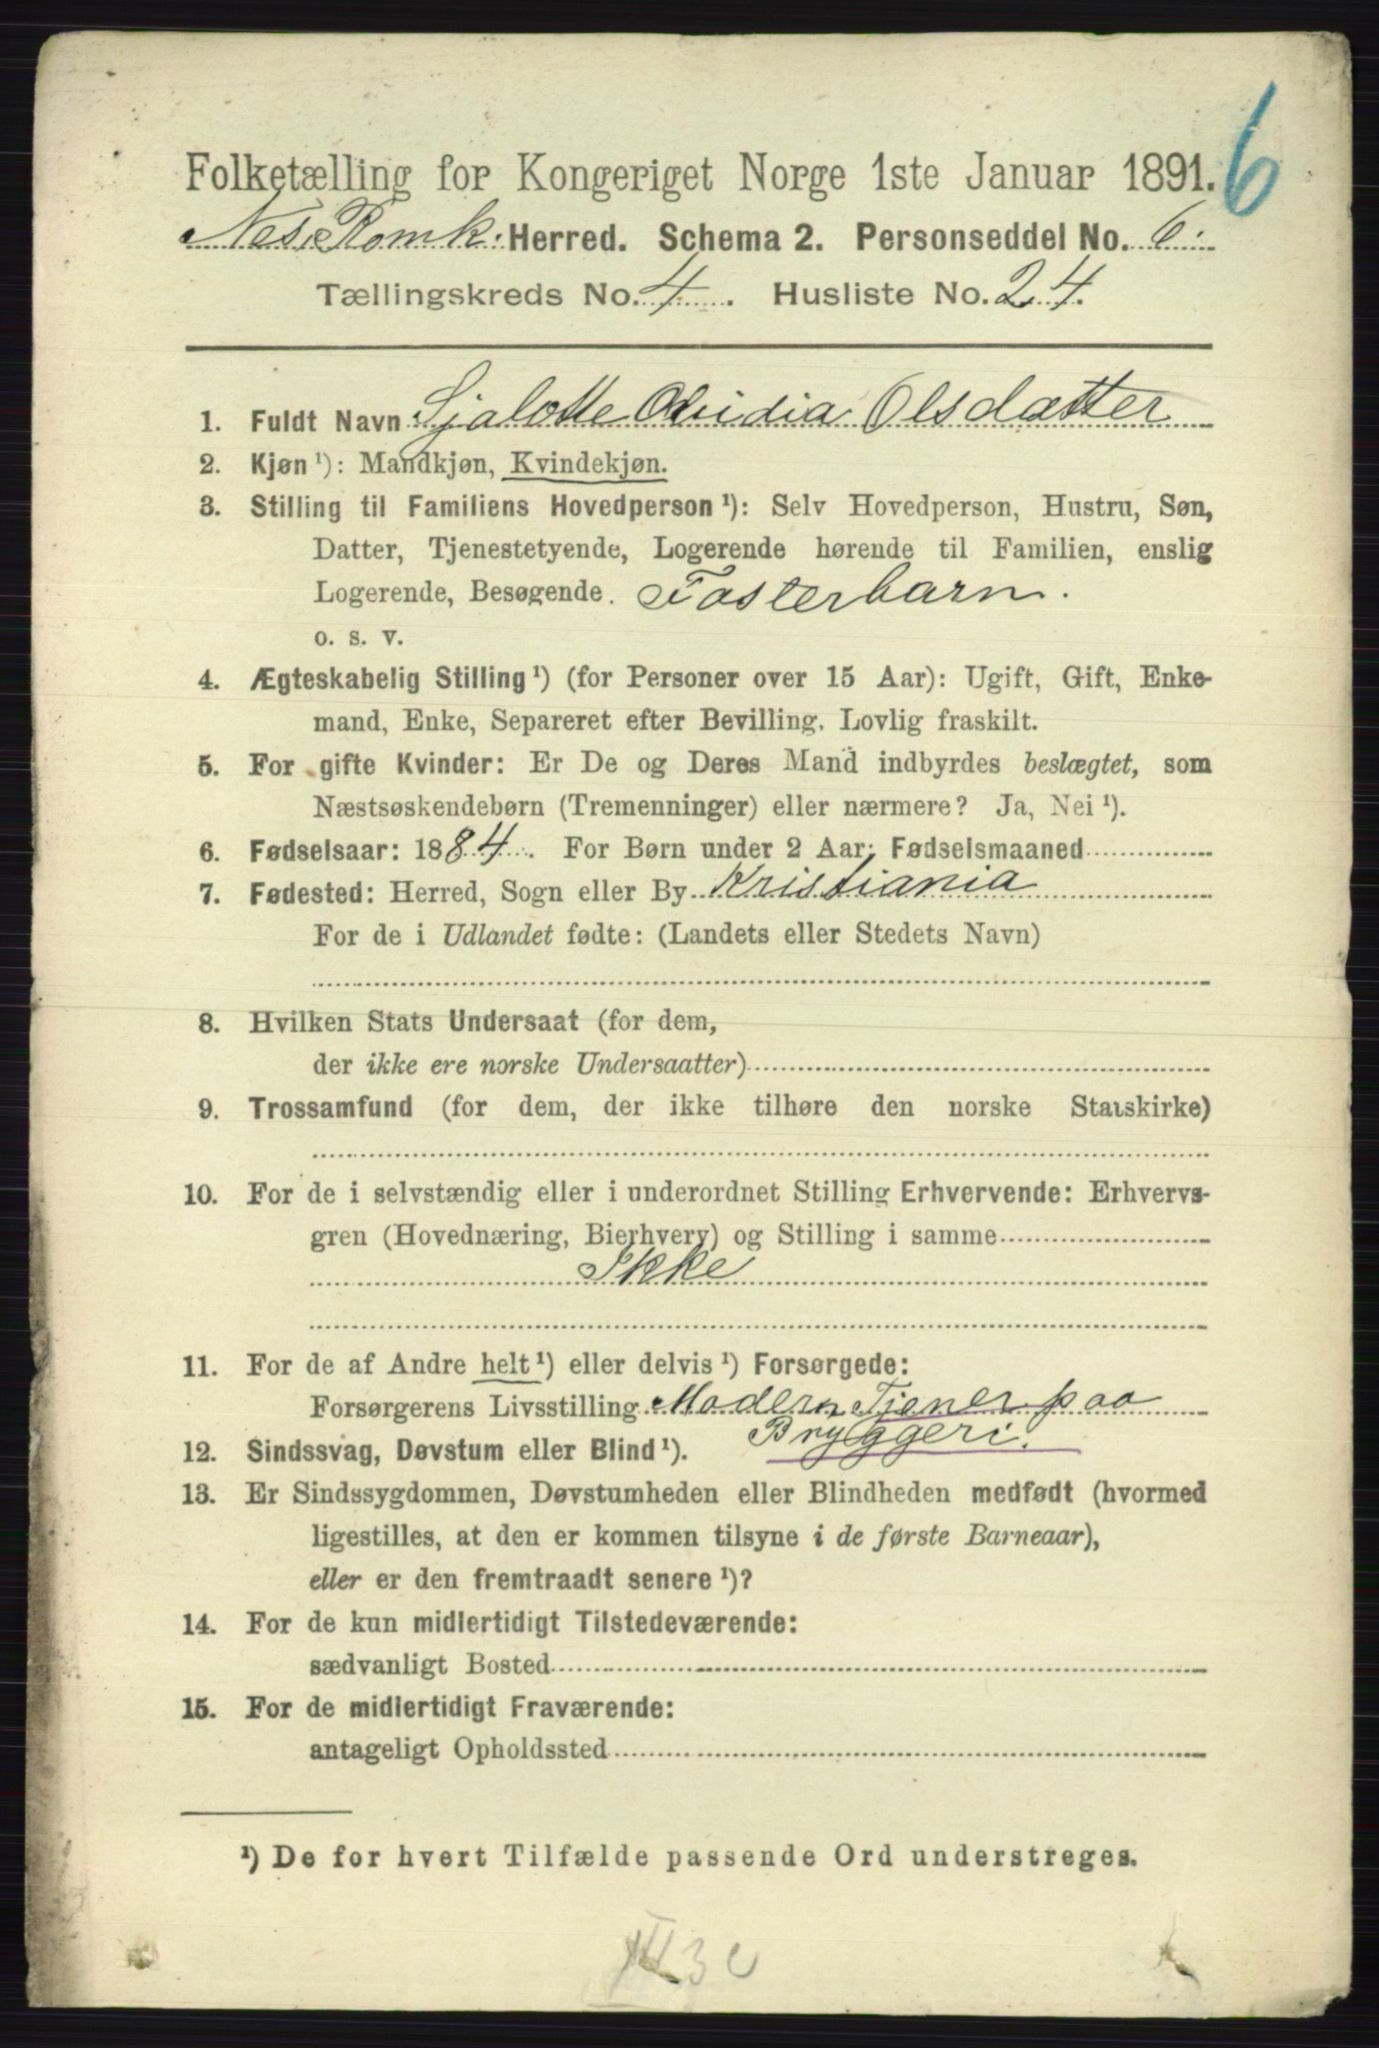 6
Folketælling for Kongeriget Norge 1ste Januar 1891.
Nes, Romk. Herred. Schema 2. Personseddel No. 6.
Tællingskreds No. 4. Husliste No. 24.
1. Fuldt Navn Sjalotte Olsdatter
2. Kjøn ¹): Mandkjøn, Kvindekjøn.
3. Stilling til Familiens Hovedperson ¹): Selv Hovedperson, Hustru, Søn,
Datter, Tjenestetyende, Logerende hørende til Familien, enslig
Logerende, Besøgende. Fosterbarn.
o. s. v.
4. Ægteskabelig Stilling ¹) (for Personer over 15 Aar): Ugift, Gift, Enke-
mand, Enke, Separeret efter Bevilling. Lovlig fraskilt.
5. For gifte Kvinder: Er De og Deres Mand indbyrdes beslægtet, som
Næstsøskendebørn (Tremenninger) eller nærmere? Ja, Nei ¹).
6. Fødselsaar: 1884. For Børn under 2 Aar: Fødselsmaaned
7. Fødested: Herred, Sogn eller By Kristiania
For de i Udlandet fødte: (Landets eller Stedets Navn)
8. Hvilken Stats Undersaat (for dem,
der ikke ere norske Undersaatter)
9. Trossamfund (for dem, der ikke tilhøre den norske Statskirke)
10. For de i selvstændig eller i underordnet Stilling Erhvervende: Erhvervs-
gren (Hovednæring, Bierhverv) og Stilling i samme
Ikke
11. For de af Andre helt ¹) eller delvis ¹) Forsørgede:
Forsørgerens Livsstilling Modern Tjener paa
Bryggeri.
12. Sindssvag, Døvstum eller Blind ¹).
13. Er Sindssygdommen, Døvstumheden eller Blindheden medfødt (hvormed
ligestilles, at den er kommen tilsyne i de første Barneaar),
eller er den fremtraadt senere ¹)?
14. For de kun midlertidigt Tilstedeværende:
sædvanligt Bosted
15. For de midlertidigt Fraværende:
antageligt Opholdssted
¹) De for hvert Tilfælde passende Ord understreges.